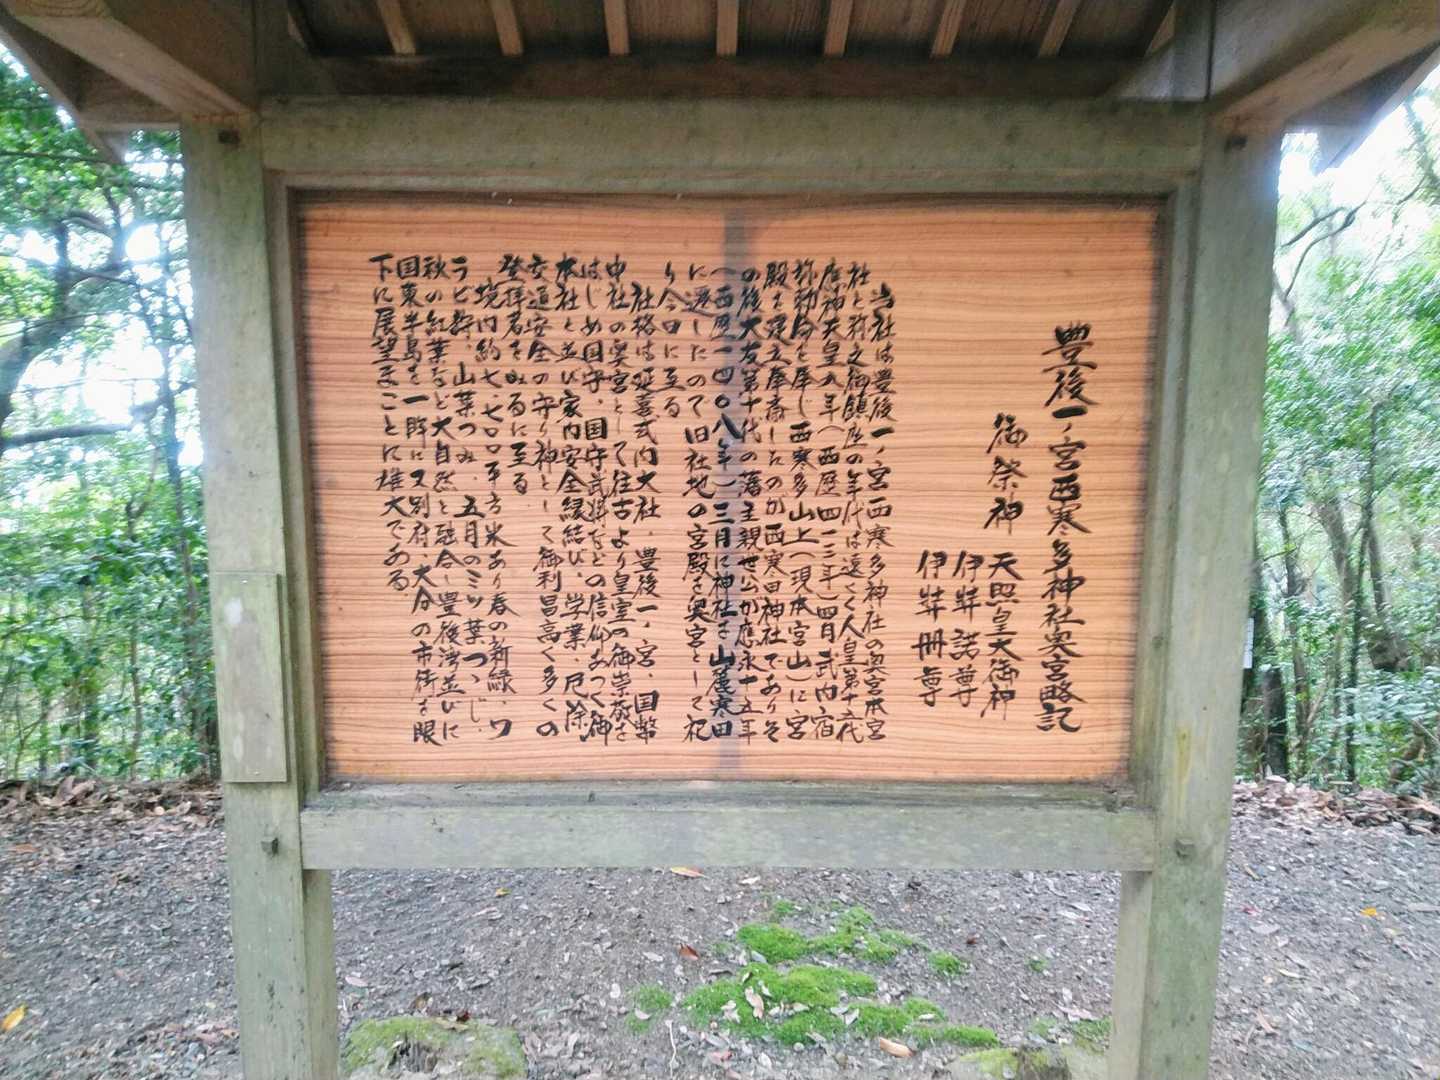 豊後一ノ宮西寒多神社奥宮略記
御祭神
天照皇大御神
伊弉諾尊
伊弉冊尊
当社は豊後一ノ宮西寒多神社の奥宮本宮
社と称え御鎮座の年代は遠く人皇第十五代
応神天皇九年(西歴四一三年)四月武内宿
祢勅命を奉じ西寒多山上(現本宮山)に宮
殿を建立奉斎したのが西寒田神社でありそ
の後大友第十代の藩主親世公が應永十五年
(西歴一四〇八年)三月に神社を山麓寒田
に遷したので旧社地の宮殿を奥宮として祀
り今日に至る
社格は延喜式内大社、豊後一ノ宮、国幣
中社の奥宮として往古より皇室の御崇敬を
はじめ国守、国守武将などの信仰あつく御
本社と並び家内安全縁結び、学業、厄除、
交通安全の守り神として御利昌高く多くの
登拝者をみるに至る
境内約七、七〇〇平方米あり春の新緑、ワ
ラビ狩、山菜つみ、五月のミツ葉つつじ、
秋の紅葉など大自然と融合し豊後湾並びに
国東半島を一眸に又別府、大分の市街を眼
下に展望まことに雄大である